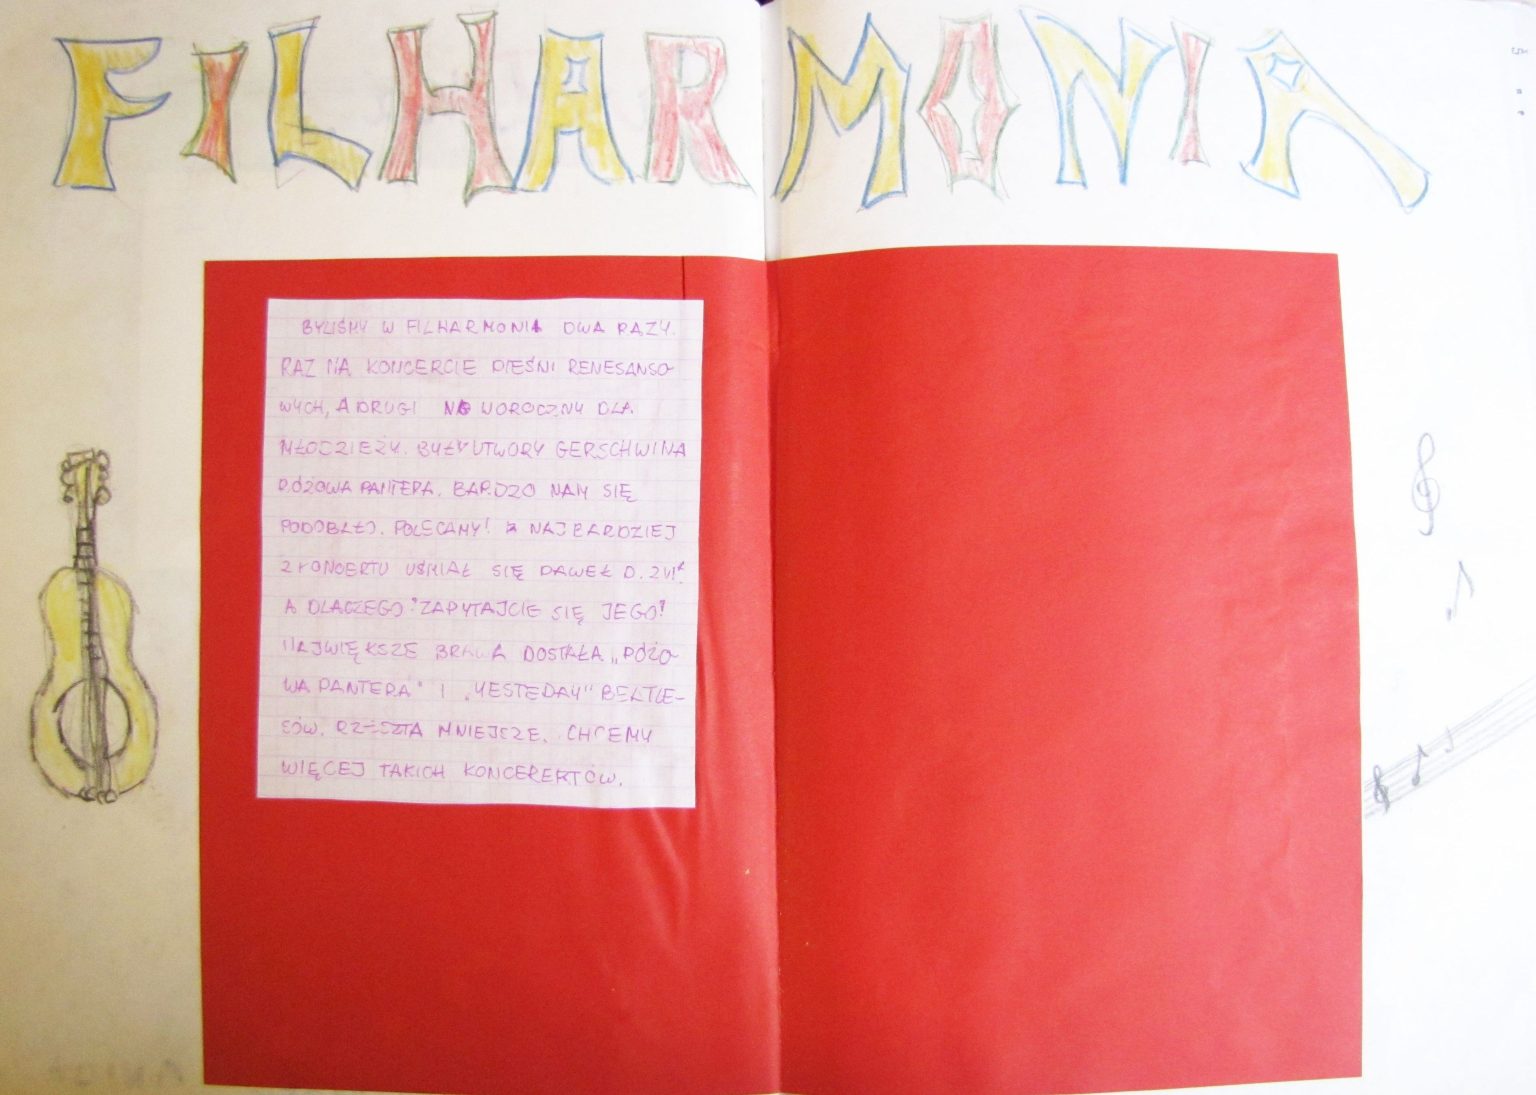 FILHARMONIA
BYLIŚMY W FILHARMONIA DWA RAZY.
RAZ NA KONCERCIE PIEŚNI RENESANSO-
WYCH, A DRUGI NOWOROCZNY DLA
MŁODZIEŻY. BYŁY UTWORY GERSCHWINA
RÓŻOWA PANTERA. BARDZO NAM SIĘ
PODOBAŁO. POLECAMY! NAJBARDZIEJ
Z KONCERTU UŚMIAŁ SIĘ PAWEŁ D. Z VI
A DLACZEGO? ZAPYTAJCIE SIĘ JEGO!
NAJWIĘKSZE BRAWA DOSTAŁA „RÓŻO-
WA PANTERA" I „YESTEDAY" BEATLE-
SÓW. RESZTA MNIEJSZE. CHCEMY
WIĘCEJ TAKICH KONCERERTÓW.